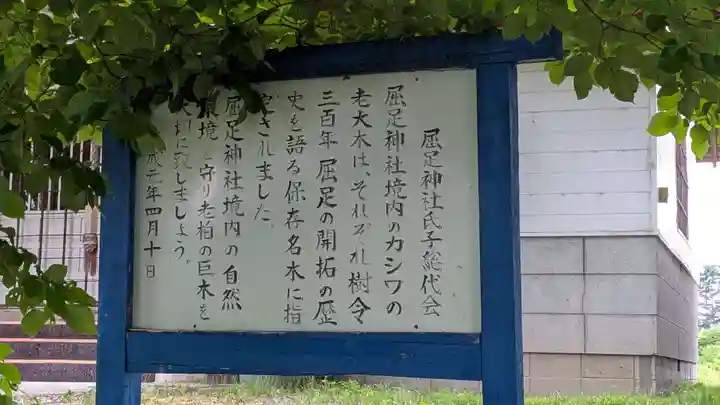 屈足神社氏子総代会
屈足神社境内のカシワの
老大木は、それぞれ樹令
三百年 屈足の開拓の歴
史を語る保存名木に指
定されました。
屈足神社境内の自然
環境を守り老柏の巨木を
大切に致しましょう。
成元年四月十日